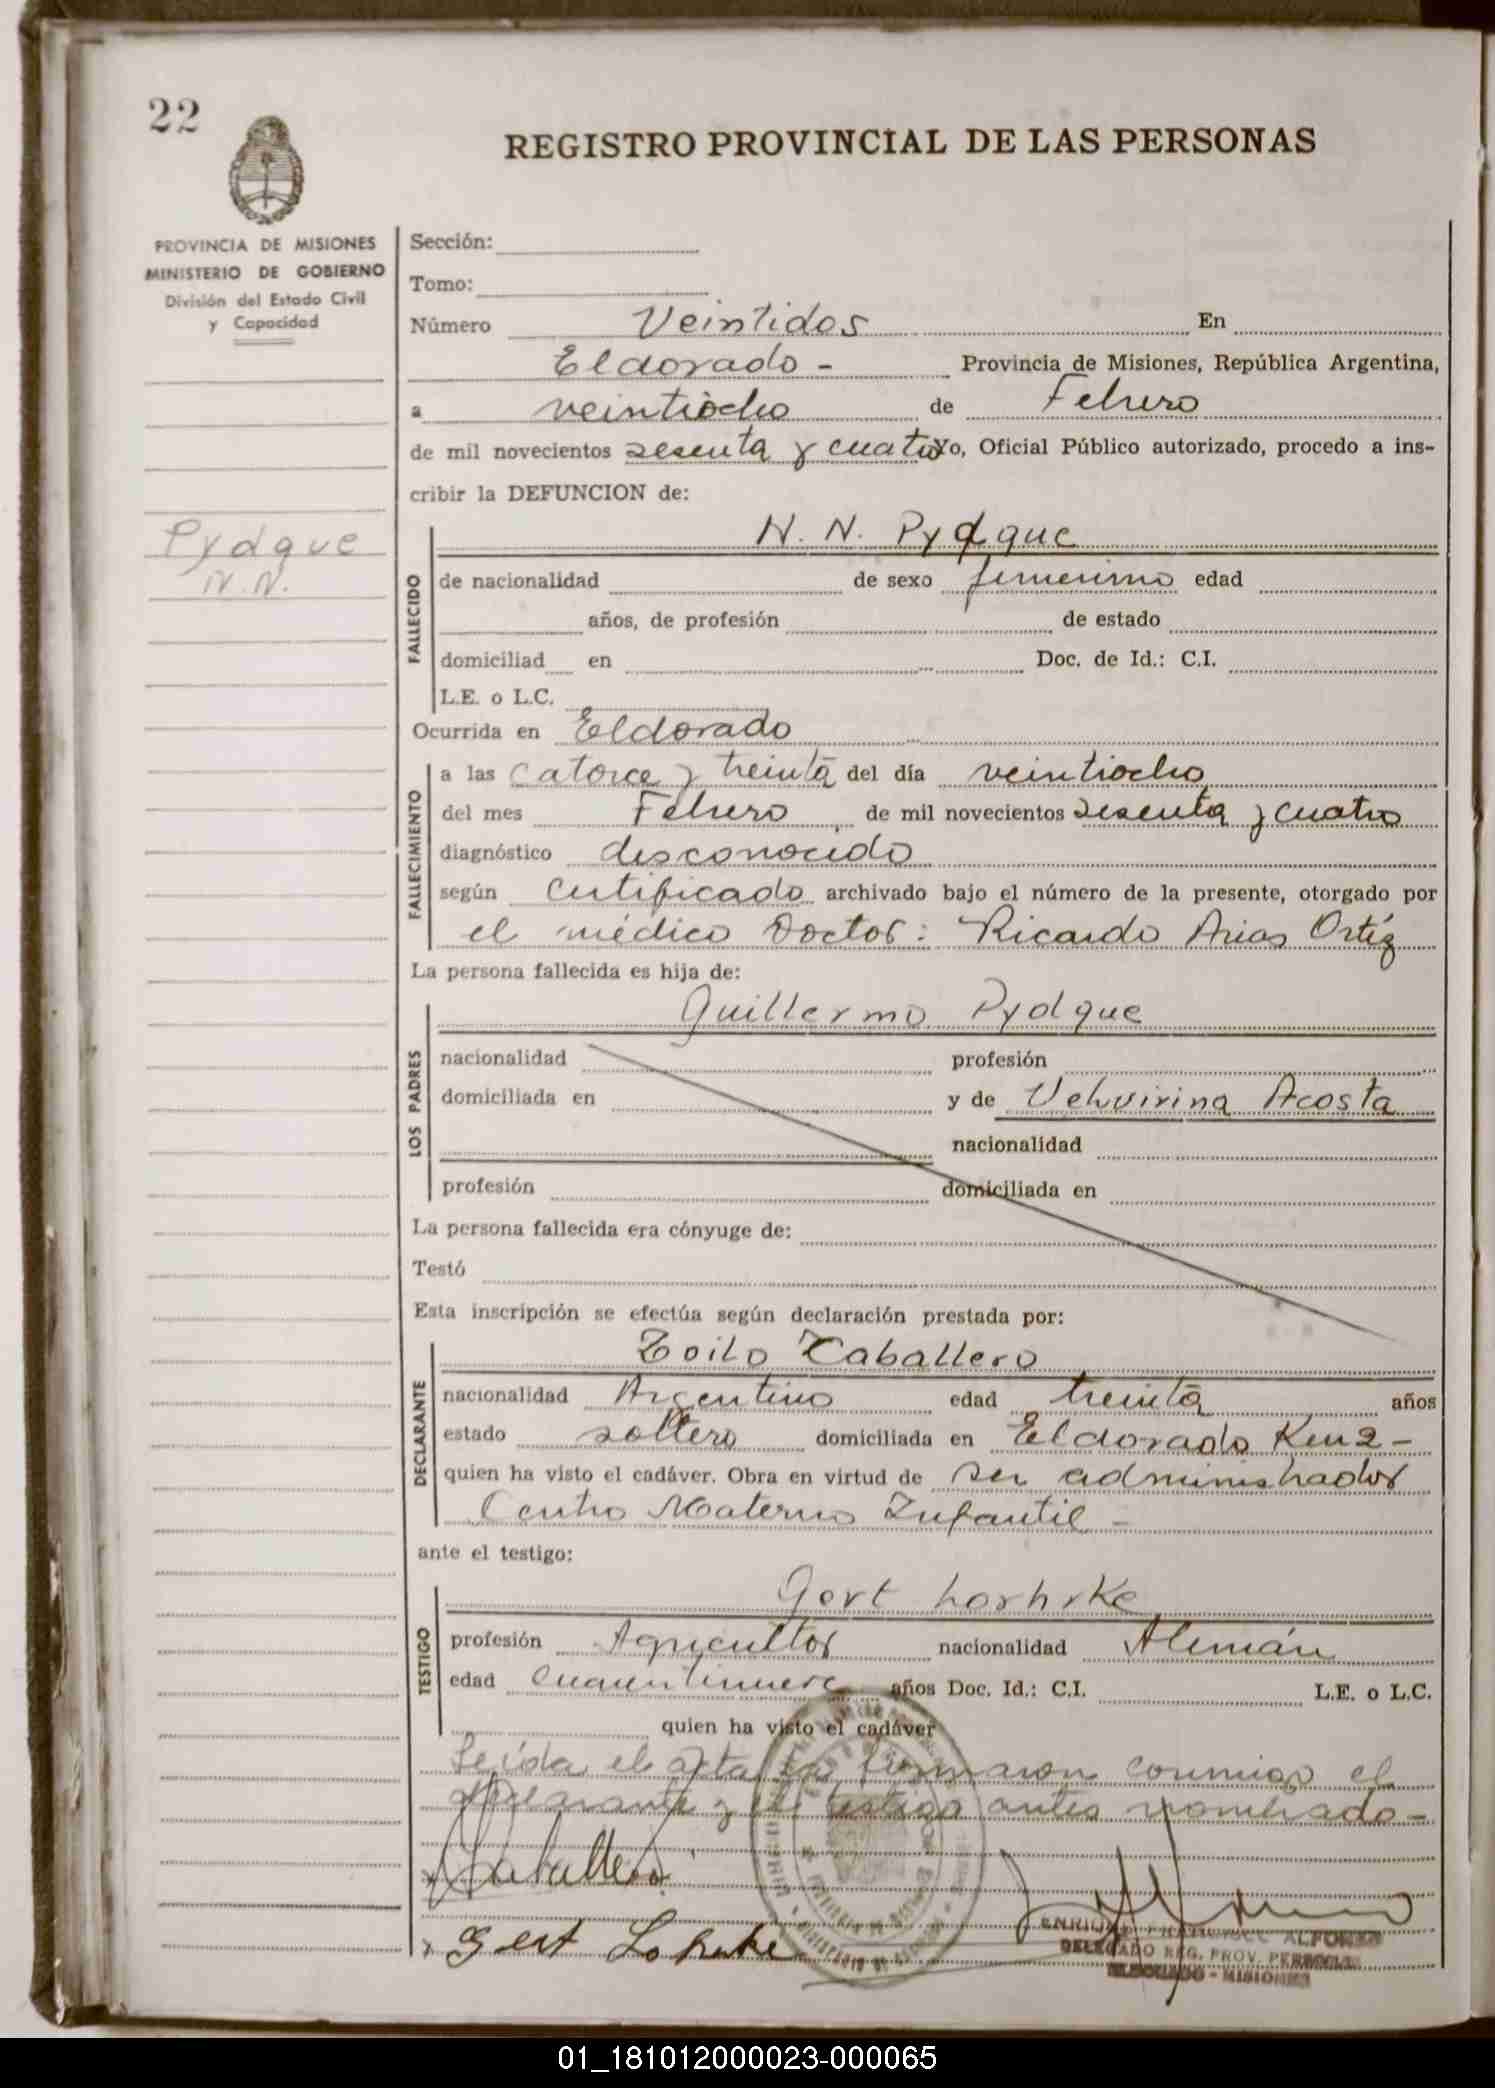 22
REGISTRO PROVINCIAL DE LAS PERSONAS
PROVINCIA DE MISIONES
MINISTERIO DE GOBIERNO
División del Estado Civil
y Capacidad
Pydque
N.N.
Sección:
Tomo:
Número Veintidos En
Eldorado - Provincia de Misiones, República Argentina,
a veintiocho de Febrero
de mil novecientos sesenta y cuatro Yo, Oficial Público autorizado, procedo a ins-
cribir la DEFUNCION de:
FALLECIDO
N. N. Pydque
de nacionalidad de sexo femenino edad
años, de profesión de estado
domiciliad en Doc. de Id.: C.I.
L.E. o L.C.
Ocurrida en Eldorado
FALLECIMIENTO
a las catorce y treinta del día veintiocho
del mes Febrero de mil novecientos sesenta y cuatro
diagnóstico desconocido
según Certificado archivado bajo el número de la presente, otorgado por
el médico Doctor: Ricardo Arias Ortíz
La persona fallecida es hija de:
LOS PADRES
Guillermo Pydque
nacionalidad profesión
domiciliada en y de Velvirina Acosta
nacionalidad
profesión domiciliada en
La persona fallecida era cónyuge de:
Testó
Esta inscripción se efectúa según declaración prestada por:
DECLARANTE
Zoilo Caballero
nacionalidad Argentino edad treinta años
estado soltero domiciliada en Eldorado Km 2 -
quien ha visto el cadáver. Obra en virtud de ser administrador
Centro Materno Infantil -
ante el testigo:
TESTIGO
Gert
profesión Agricultor nacionalidad Alemán
edad años Doc. Id.: C.I. L.E. o L.C.
quien ha visto el cadáver
Leída el acta la firmaron conmigo el
declarante y el testigo antes nombrado -
Caballero
Gert
ENRIQUE FRANCISCO ALFONZO
DELEGADO REG. PROV. PERSONAS
ELDORADO - MISIONES
01_181012000023-000065